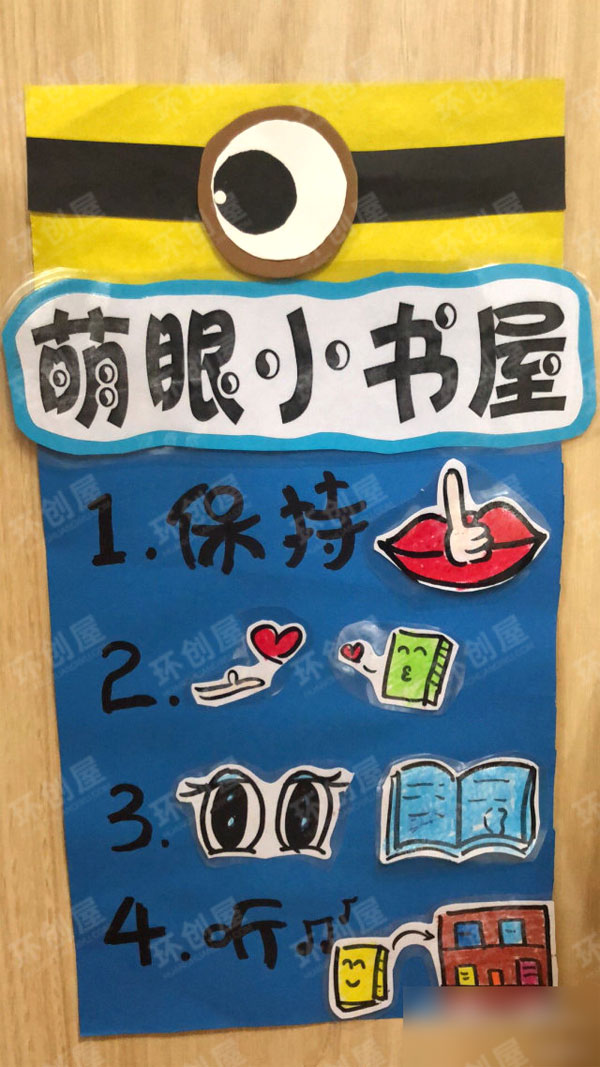 萌眼小书屋
1.保持
2.
3.
4.听
环创屋